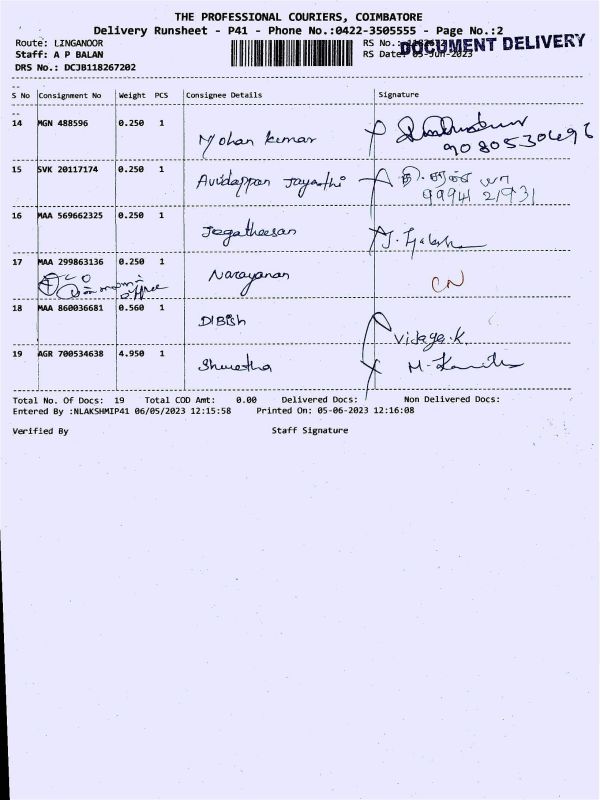 THE PROFESSIONAL COURIERS, COIMBATORE
Delivery Runsheet - P41 - Phone No.:0422-3505555 - Page No.:2
Route: LINGANOOR
RS No.:
DOCUMENT DELIVERY
Staff: A P BALAN
RS Date: 05-Jun-2023
DRS No.: DCJB118267202
S No Consignment No Weight PCS Consignee Details Signature
14 MGN 488596 0.250 1 Mohan kumar
15 SVK 20117174 0.250 1 Avudappan Jayanthi
99941 21931
16 MAA 569662325 0.250 1 Jegatheesan
17 MAA 299863136 0.250 1 Narayanan CN
office
18 MAA 860036681 0.560 1 DIBish
Vijaya.K
19 AGR 700534638 4.950 1 Shwetha
Total No. Of Docs: 19 Total COD Amt: 0.00 Delivered Docs: Non Delivered Docs:
Entered By :NLAKSHMIP41 06/05/2023 12:15:58 Printed On: 05-06-2023 12:16:08
Verified By Staff Signature